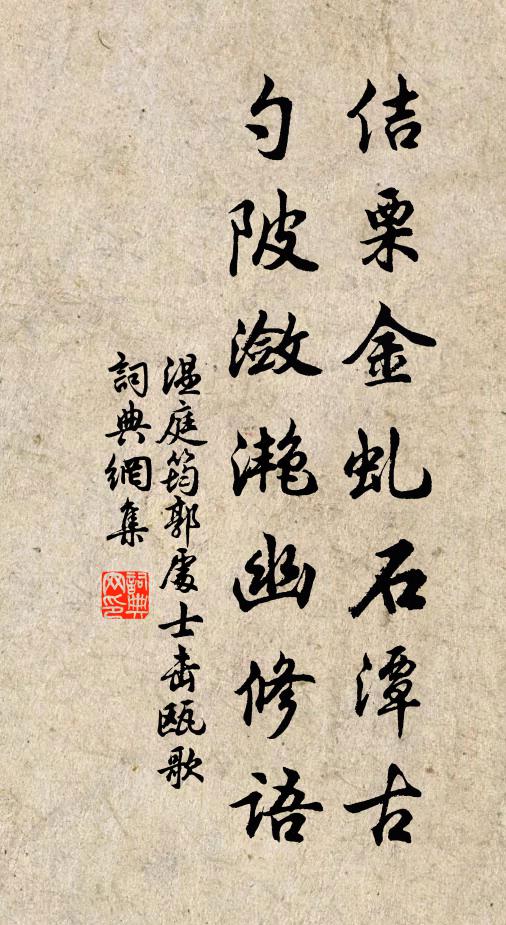 佶栗金虬石潭古
勺陂潋滟幽修語
温庭筠郭處士击瓯歌
詞典網集
詞典網印